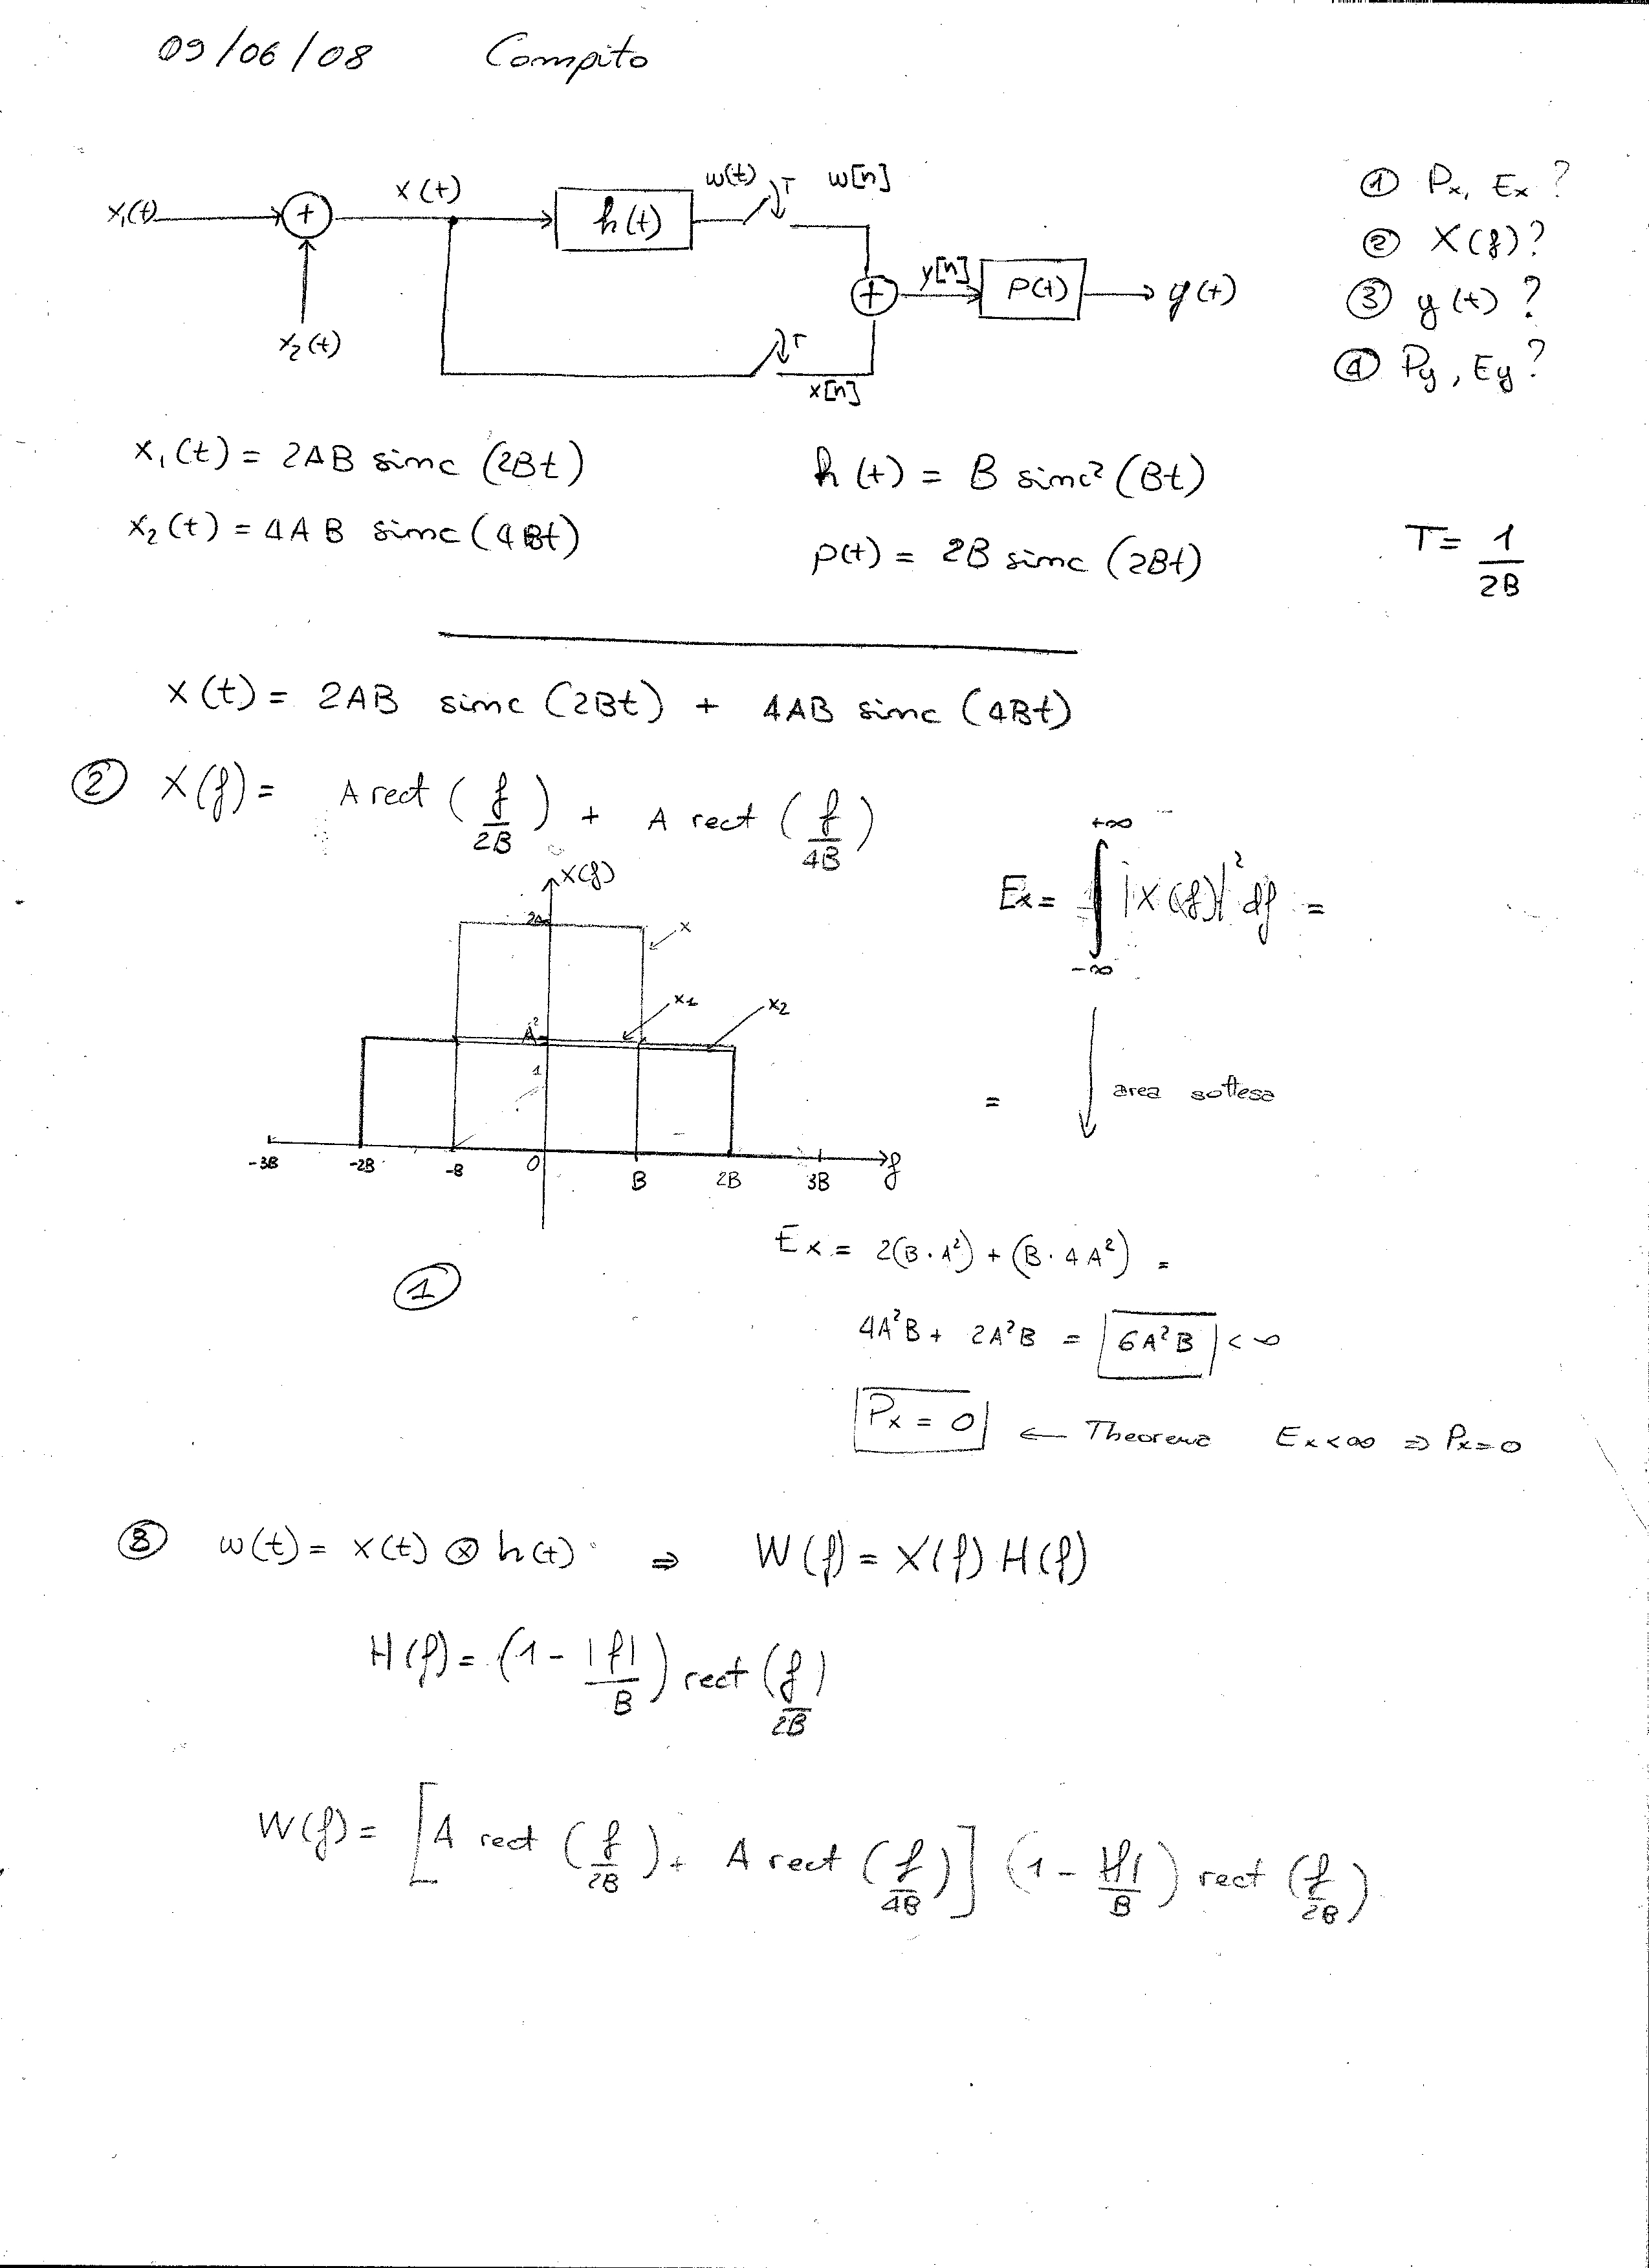 09/06/08 Compito
x₁(t) + x(t) h(t) w(t) T w[n]
x₂(t) T x[n] + y[n] p(t) y(t)
① Pₓ, Eₓ ?
② X(f)?
③ y(t) ?
④ Py, Ey ?
x₁(t) = 2AB sinc (2Bt)
x₂(t) = 4AB sinc (4Bt)
h(t) = B sinc² (Bt)
p(t) = 2B sinc (2Bt)
T = 1/2B
x(t) = 2AB sinc (2Bt) + 4AB sinc (4Bt)
② X(f) = A rect (f/2B) + A rect (f/4B)
X(f)
2A
x
x₁
x₂
A²
1
-3B -2B -B 0 B 2B 3B f
Ex = ∫ |X(f)|² df =
+∞
-∞
= area sottesa
①
Ex = 2(B·A²) + (B·4A²) =
4A²B + 2A²B = 6A²B < ∞
Px = 0 ← Theorema Ex<∞ ⇒ Px=0
③ w(t) = x(t) ⊗ h(t) ⇒ W(f) = X(f) H(f)
H(f) = (1 - |f|/B) rect (f/2B)
W(f) = [A rect (f/2B) + A rect (f/4B)] (1 - |f|/B) rect (f/2B)